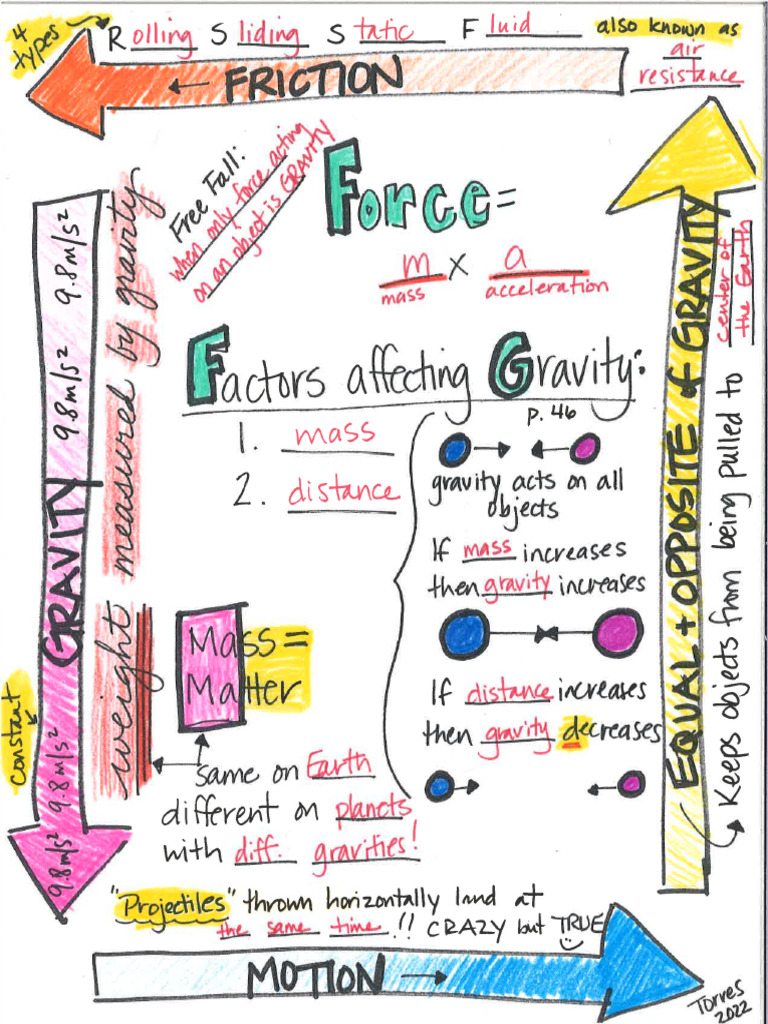 4 types
Rolling Sliding Static Fluid also known as
air
resistance
← FRICTION
Free Fall:
when only force acting
on an object is GRAVITY
Force =
m x a
mass acceleration
9.8m/s² 9.8m/s² GRAVITY 9.8m/s² 9.8m/s²
constant
weight measured by gravity
Factors affecting Gravity:
p. 46
1. mass
2. distance
gravity acts on all
objects
If mass increases
then gravity increases
If distance increases
then gravity decreases
Mass =
Matter
same on Earth
different on planets
with diff. gravities!
EQUAL + OPPOSITE of GRAVITY
Keeps objects from being pulled to
center of
the Earth
"Projectiles" thrown horizontally land at
the same time!! CRAZY but TRUE
MOTION →
Torres
2022